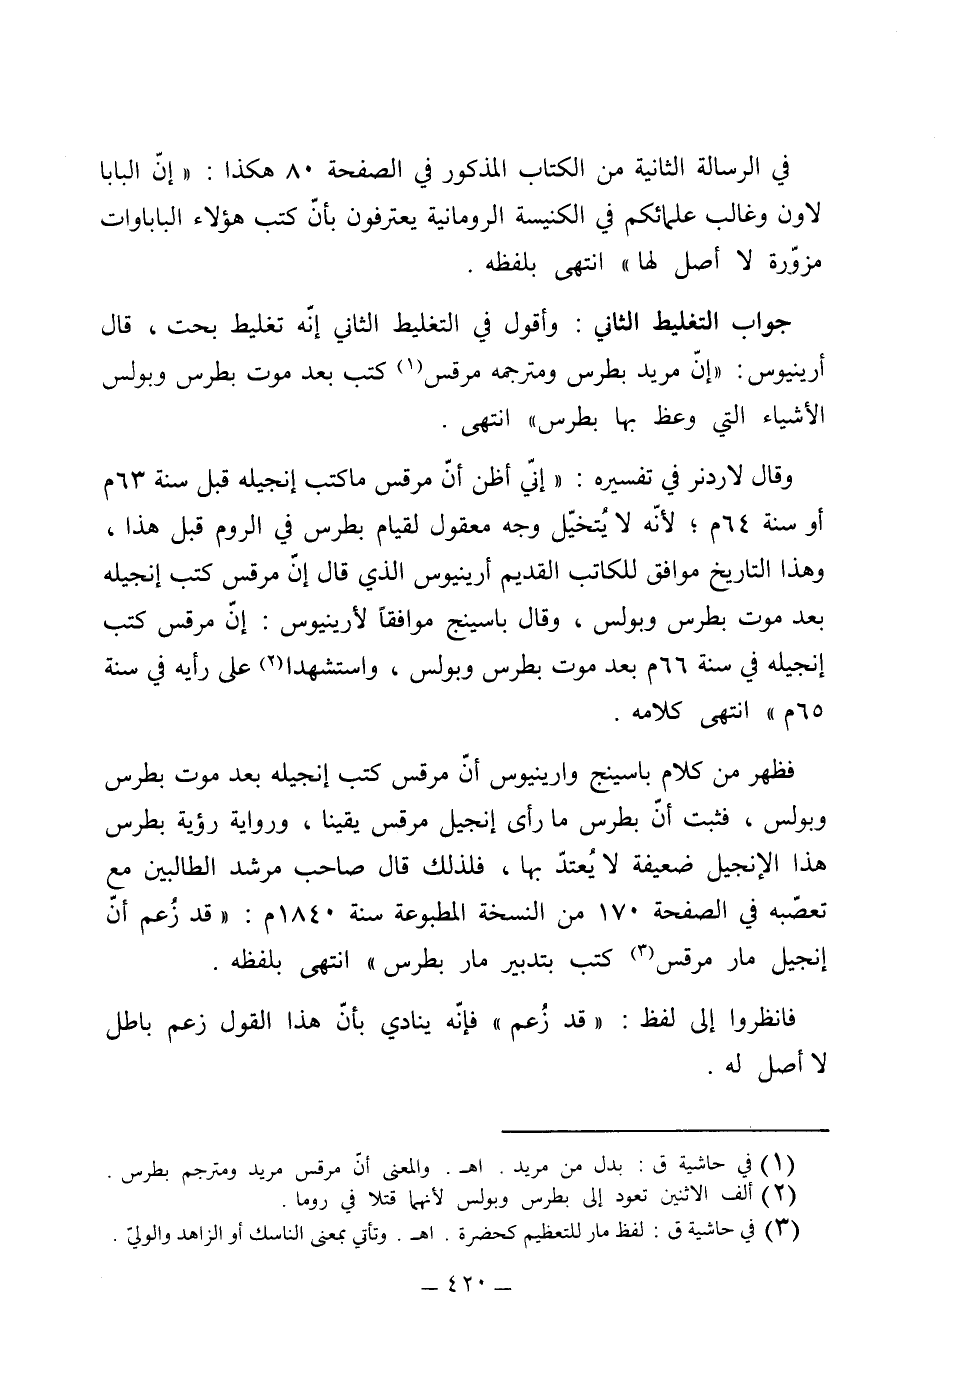 في الرسالة الثانية من الكتاب المذكور في الصفحة ٨٠ هكذا : « إنّ البابا
لاون وغالب علمائكم في الكنيسة الرومانية يعترفون بأنّ كتب هؤلاء الباباوات
مزوّرة لا أصل لها » انتهى بلفظه .
جواب التغليط الثاني : وأقول في التغليط الثاني إنّه تغليط بحت ، قال
أرينيوس : «إنّ مريد بطرس ومترجمه مرقس(١) كتب بعد موت بطرس وبولس
الأشياء التي وعظ بها بطرس» انتهى .
وقال لاردنر في تفسيره : « إنّي أظن أنّ مرقس ماكتب إنجيله قبل سنة ٦٣م
أو سنة ٦٤م ؛ لأنّه لا يُتخيّل وجه معقول لقيام بطرس في الروم قبل هذا ،
وهذا التاريخ موافق للكاتب القديم أرينيوس الذي قال إنّ مرقس كتب إنجيله
بعد موت بطرس وبولس ، وقال باسينج موافقاً لأرينيوس : إنّ مرقس كتب
إنجيله في سنة ٦٦م بعد موت بطرس وبولس ، واستشهدا(٢) على رأيه في سنة
٦٥م » انتهى كلامه .
فظهر من كلام باسينج وارينيوس أنّ مرقس كتب إنجيله بعد موت بطرس
وبولس ، فثبت أنّ بطرس ما رأى إنجيل مرقس يقينا ، ورواية رؤية بطرس
هذا الإنجيل ضعيفة لا يُعتدّ بها ، فلذلك قال صاحب مرشد الطالبين مع
تعصّبه في الصفحة ١٧٠ من النسخة المطبوعة سنة ١٨٤٠م : « قد زُعم أنّ
إنجيل مار مرقس(٣) كتب بتدبير مار بطرس » انتهى بلفظه .
فانظروا إلى لفظ : « قد زُعم » فإنّه ينادي بأنّ هذا القول زعم باطل
لا أصل له .
(١) في حاشية ق : بدل من مريد . اهـ . والمعنى أنّ مرقس مريد ومترجم بطرس .
(٢) ألف الاثنين تعود إلى بطرس وبولس لأنهما قتلا في روما .
(٣) في حاشية ق : لفظ مار للتعظيم كحضرة . اهـ . وتأتي بمعنى الناسك أو الزاهد والوليّ .
– ٤٢٠ –